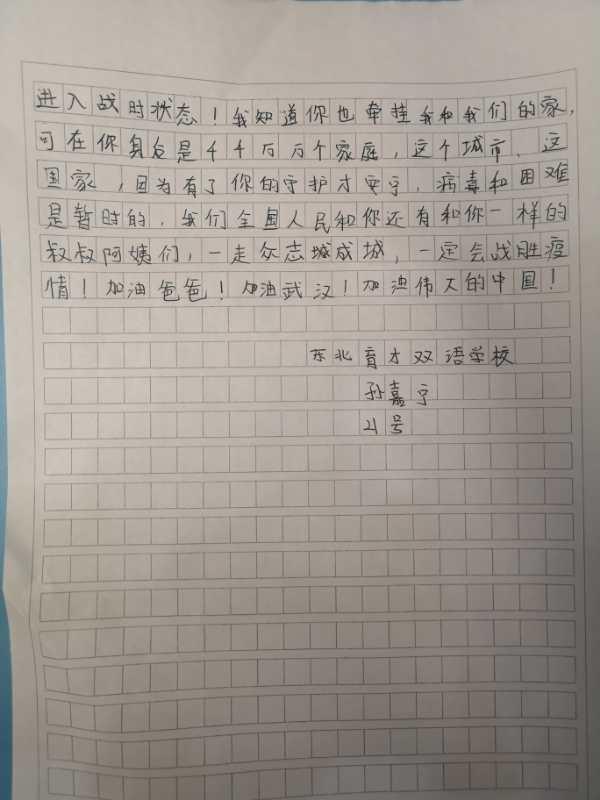 进入战时状态！我知道你也牵挂我和我们的家，
可在你身后是千千万万个家庭，这个城市、这
国家，因为有了你的守护才安宁，病毒和困难
是暂时的，我们全国人民和你还有和你一样的
叔叔阿姨们，一走众志城成城，一定会战胜疫
情！加油爸爸！加油武汉！加油伟大的中国！
东北育才双语学校
孙嘉宁
21号